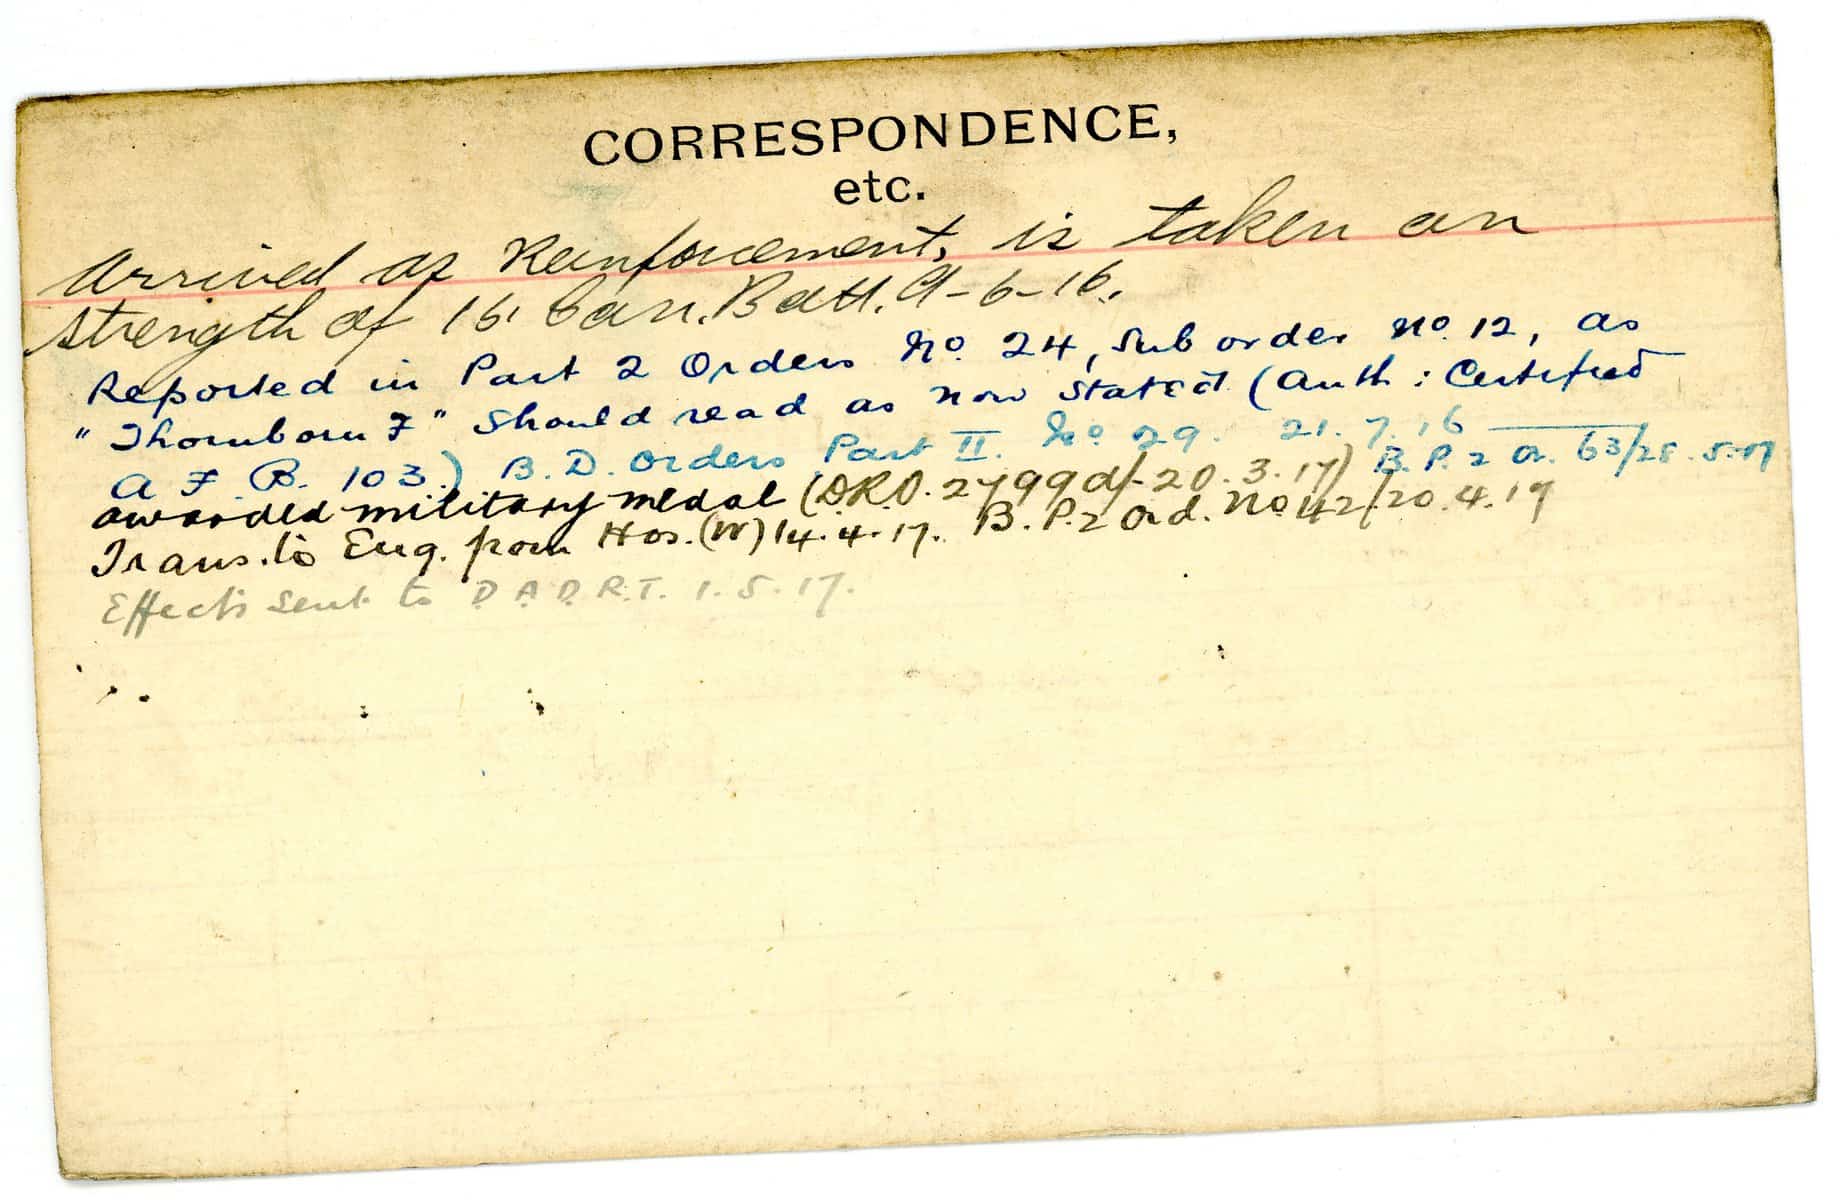 CORRESPONDENCE,
etc.
Arrived as Reinforcement, is taken on
strength of 16 Can. Batt. 9-6-16.
Reported in Part 2 Orders No. 24, Sub order No. 12, as
"Thornborn F" should read as now stated (Auth: Certified
A F. B. 103.) B. D. Orders Part II. No. 29. 21. 7. 16
awarded military medal (DRO. 2799 d/- 20. 3. 17) B. P. 2 O. 63/28. 5. 17
Trans. to Eng. from Hos. (W) 14. 4. 17. B. P. 2 Ord. No 42/20. 4. 17
Effects sent to D A D R.T. 1. 5. 17.